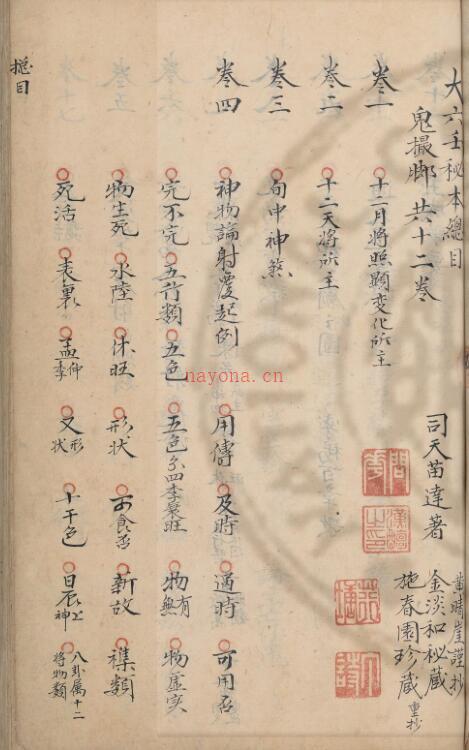 大六壬秘本總目
鬼撮脚 共十二卷 司天苗達著
黄晴崖謹抄
金淡和秘藏
施春園珍藏 重抄
卷一 十二月將照顯变化所主
卷二 十二天將所主
卷三 旬中神煞
卷四 神物論射覆起例 用傳 及時 過時 可用否
完不完 五行類 五色 五色分四季衰旺 物有無 物虛实
物生死 水陸 休旺 形状 可食否 新故 襍類
死活 表裏 孟仲季 又形状 十干色 日辰上神 八卦属十二將物類
摠目
nayona.cn